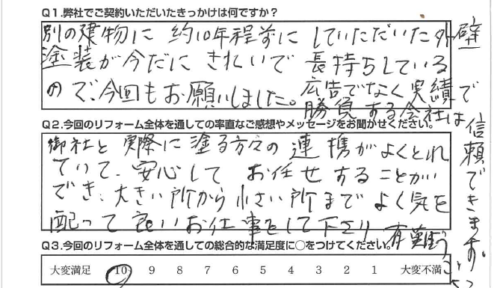 Q1.弊社でご契約いただいたきっかけは何ですか?
別の建物に約10年程前にしていただいた外壁
塗装が今だにきれいで長持ちしている
ので、今回もお願いしました。広告でなく実績で
勝負する会社は信頼できます。
Q2.今回のリフォーム全体を通しての率直なご感想やメッセージをお聞かせください。
御社と実際に塗る方々の連携がよくとれ
ていて、安心してお任せすることが
でき、大きい所から小さい所までよく気を
配って良いお仕事をして下さり有難う
Q3.今回のリフォーム全体を通しての総合的な満足度に○をつけてください。
大変満足 10 9 8 7 6 5 4 3 2 1 大変不満